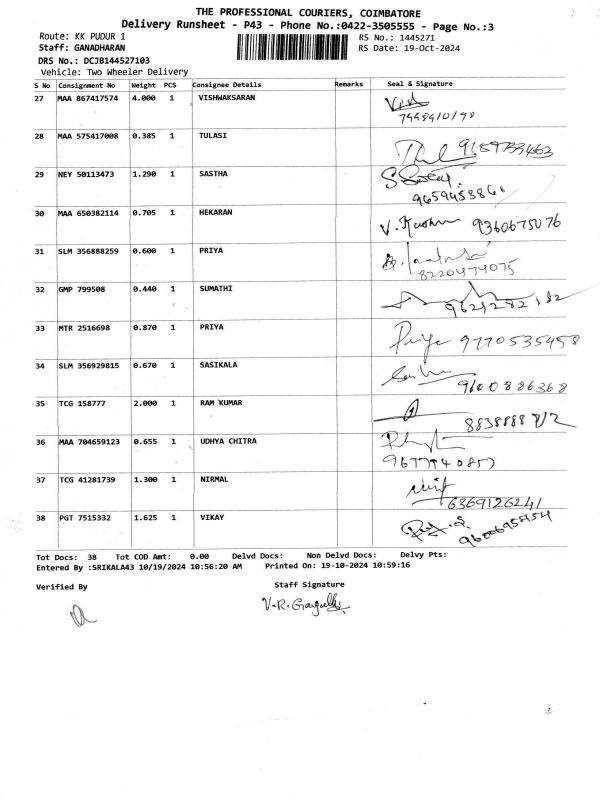 THE PROFESSIONAL COURIERS, COIMBATORE
Delivery Runsheet - P43 - Phone No.:0422-3505555 - Page No.:3
Route: KK PUDUR 1 RS No.: 1445271
Staff: GANADHARAN RS Date: 19-Oct-2024
DRS No.: DCJB144527103
Vehicle: Two Wheeler Delivery
S No Consignment No Weight PCS Consignee Details Remarks Seal & Signature
27 MAA 867417574 4.000 1 VISHWAKSARAN
28 MAA 575417008 0.385 1 TULASI
29 NEY 50113473 1.290 1 SASTHA
30 MAA 650382114 0.705 1 HEKARAN
9360675076
31 SLM 356888259 0.600 1 PRIYA
8220474075
32 GMP 799508 0.440 1 SUMATHI
33 MTR 2516698 0.870 1 PRIYA Priya 9770535458
34 SLM 356929815 0.670 1 SASIKALA
9600886368
35 TCG 158777 2.000 1 RAM KUMAR
36 MAA 704659123 0.655 1 UDHYA CHITRA
37 TCG 41281739 1.300 1 NIRMAL
6369126241
38 PGT 7515332 1.625 1 VIKAY
Tot Docs: 38 Tot COD Amt: 0.00 Delvd Docs: Non Delvd Docs: Delvy Pts:
Entered By :SRIKALA43 10/19/2024 10:56:20 AM Printed On: 19-10-2024 10:59:16
Verified By Staff Signature